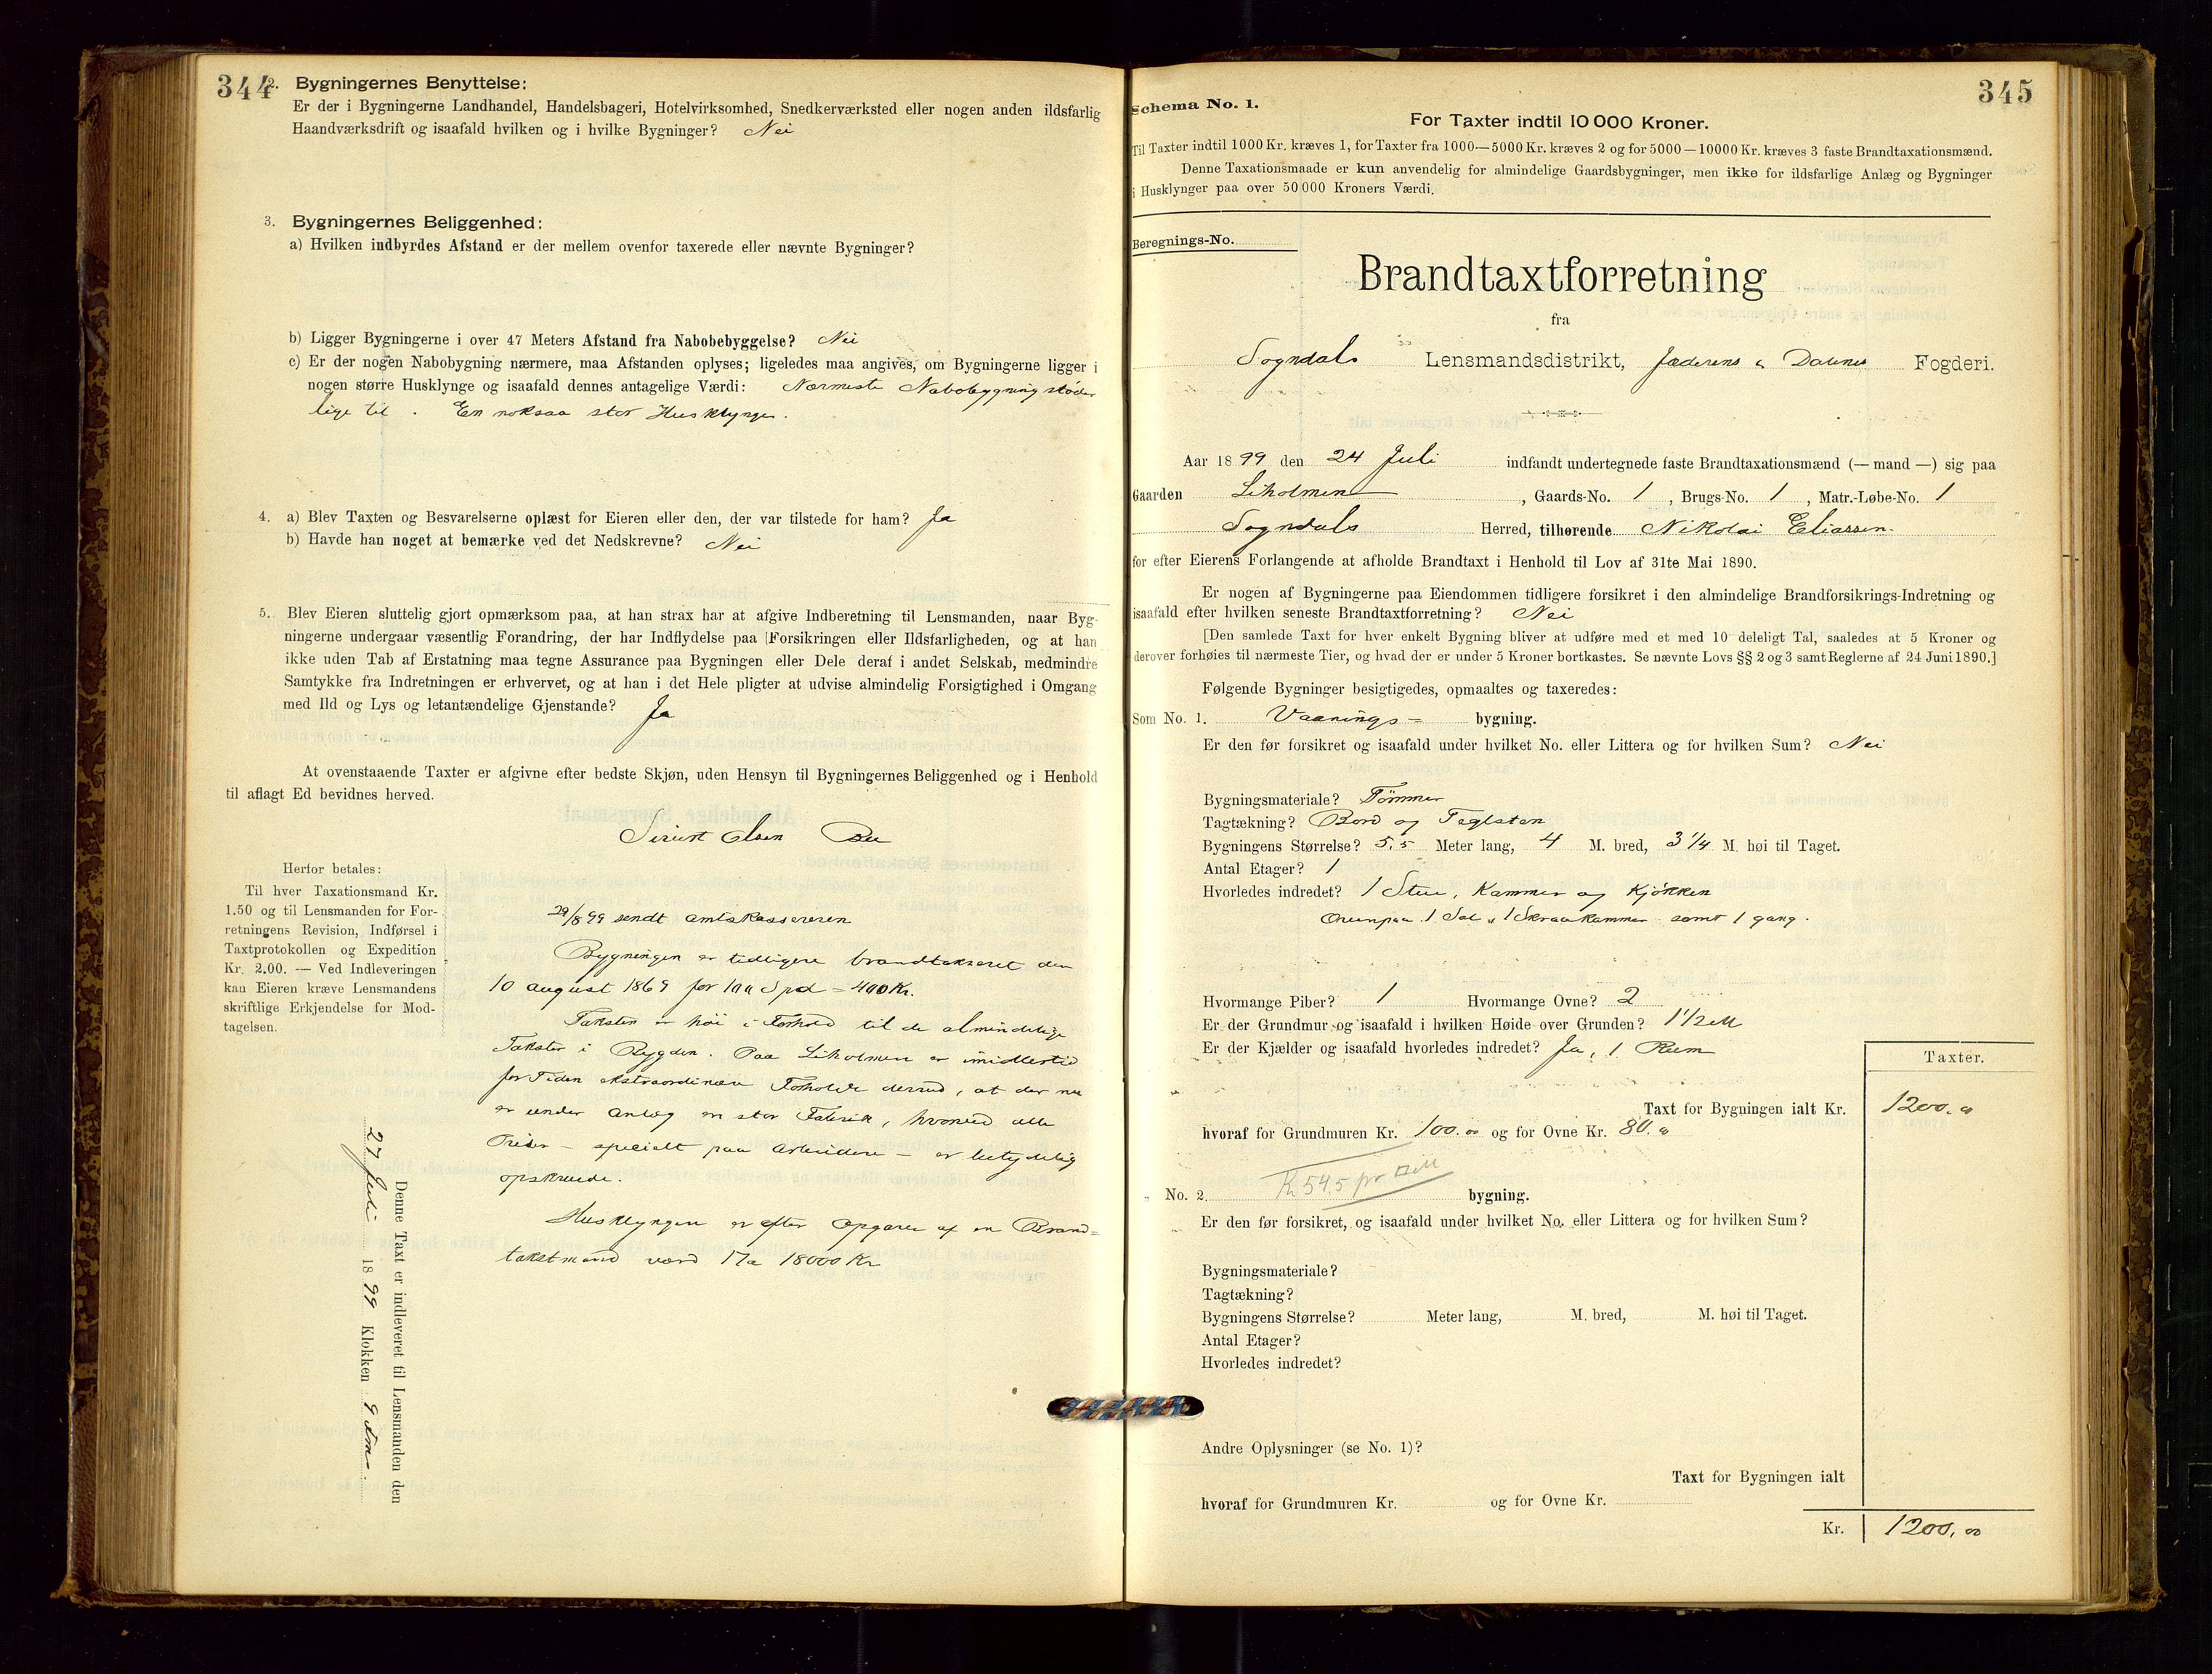 344
2. Bygningernes Benyttelse:
Er der i Bygningerne Landhandel, Handelsbageri, Hotelvirksomhed, Snedkerværksted eller nogen anden ildsfarlig
Haandværksdrift og isaafald hvilken og i hvilke Bygninger? Nei
3. Bygningernes Beliggenhed:
a) Hvilken indbyrdes Afstand er der mellem ovenfor taxerede eller nævnte Bygninger?
b) Ligger Bygningerne i over 47 Meters Afstand fra Nabobebyggelse? Nei
c) Er der nogen Nabobygning nærmere, maa Afstanden oplyses; ligeledes maa angives, om Bygningerne ligger i
nogen større Husklynge og isaafald dennes antagelige Værdi: Nærmeste Nabobygning støder
lige til. En noksaa stor Husklynge.
4. a) Blev Taxten og Besvarelserne oplæst for Eieren eller den, der var tilstede for ham? Ja
b) Havde han noget at bemærke ved det Nedskrevne? Nei
5. Blev Eieren sluttelig gjort opmærksom paa, at han strax har at afgive Indberetning til Lensmanden, naar Byg-
ningerne undergaar væsentlig Forandring, der har Indflydelse paa Forsikringen eller Ildsfarligheden, og at han
ikke uden Tab af Erstatning maa tegne Assurance paa Bygningen eller Dele deraf i andet Selskab, medmindre
Samtykke fra Indretningen er erhvervet, og at han i det Hele pligter at udvise almindelig Forsigtighed i Omgang
med Ild og Lys og letantændelige Gjenstande? Ja
At ovenstaaende Taxter er afgivne efter bedste Skjøn, uden Hensyn til Bygningernes Beliggenhed og i Henhold
til aflagt Ed bevidnes herved.
Sivert Olsen
Herfor betales:
Til hver Taxationsmand Kr.
1.50 og til Lensmanden for For-
retningens Revision, Indførsel i
Taxtprotokollen og Expedition
Kr. 2.00. — Ved Indleveringen
kan Eieren kræve Lensmandens
skriftlige Erkjendelse for Mod-
tagelsen.
29/8 99 sendt amtskassereren
Bygningen er tidligere brandtakseret den
10 august 1869 for 100 Spd = 400 Kr.
Taksten er høi i Forhold til de almindelige
Takster i Bygden. Paa Liholmen er imidlertid
for Tiden ekstraordinære Forholde derved, at der nu
er under Anlæg en stor Fabrik, hvorved alle
Priser – specielt paa Arbeidere – er betydelig
opskruede.
Husklyngen er efter Opgave af en Brand=
takstmand værd 17 a 18000 Kr
Denne Taxt er indleveret til Lensmanden den
27 Juli 1899 Klokken 9 Fm.
345
Schema No. 1.
For Taxter indtil 10 000 Kroner.
Til Taxter indtil 1000 Kr. kræves 1, for Taxter fra 1000—5000 Kr. kræves 2 og for 5000—10000 Kr. kræves 3 faste Brandtaxationsmænd.
Denne Taxationsmaade er kun anvendelig for almindelige Gaardsbygninger, men ikke for ildsfarlige Anlæg og Bygninger
i Husklynger paa over 50 000 Kroners Værdi.
Beregnings-No.
Brandtaxtforretning
fra
Sogndals Lensmandsdistrikt, Jæderens & Dalenes Fogderi.
Aar 1899 den 24 Juli indfandt undertegnede faste Brandtaxationsmænd (— mand —) sig paa
Gaarden Liholmen, Gaards-No. 1, Brugs-No. 1, Matr.-Løbe-No. 1
Sogndals Herred, tilhørende Nikolai Eliassen.
for efter Eierens Forlangende at afholde Brandtaxt i Henhold til Lov af 31te Mai 1890.
Er nogen af Bygningerne paa Eiendommen tidligere forsikret i den almindelige Brandforsikrings-Indretning og
isaafald efter hvilken seneste Brandtaxtforretning? Nei
[Den samlede Taxt for hver enkelt Bygning bliver at udføre med et med 10 deleligt Tal, saaledes at 5 Kroner og
derover forhøies til nærmeste Tier, og hvad der er under 5 Kroner bortkastes. Se nævnte Lovs §§ 2 og 3 samt Reglerne af 24 Juni 1890.]
Følgende Bygninger besigtigedes, opmaaltes og taxeredes:
Som No. 1. Vaanings= bygning.
Er den før forsikret og isaafald under hvilket No. eller Littera og for hvilken Sum? Nei
Bygningsmateriale? Tømmer
Tagtækning? Bord og Taglsten
Bygningens Størrelse? 5,5 Meter lang, 4 M. bred, 3 1/4 M. høi til Taget.
Antal Etager? 1
Hvorledes indredet? 1 Stue, Kammer og Kjøkken
Ovenpaa 1 Sal & 1 Skraakammer samt 1 gang.
Hvormange Piber? 1 Hvormange Ovne? 2
Er der Grundmur og isaafald i hvilken Høide over Grunden? 1 1/2 M
Er der Kjælder og isaafald hvorledes indredet? Ja, 1 Rum
Taxter.
Taxt for Bygningen ialt Kr. 1200. "
hvoraf for Grundmuren Kr. 100. 00 og for Ovne Kr. 80. "
Kr 54.5 pr □M
" No. 2. bygning.
Er den før forsikret, og isaafald under hvilket No. eller Littera og for hvilken Sum?
Bygningsmateriale?
Tagtækning?
Bygningens Størrelse? Meter lang, M. bred, M. høi til Taget.
Antal Etager?
Hvorledes indredet?
Andre Oplysninger (se No. 1)?
Taxt for Bygningen ialt
hvoraf for Grundmuren Kr. og for Ovne Kr.
Kr. 1200, 00